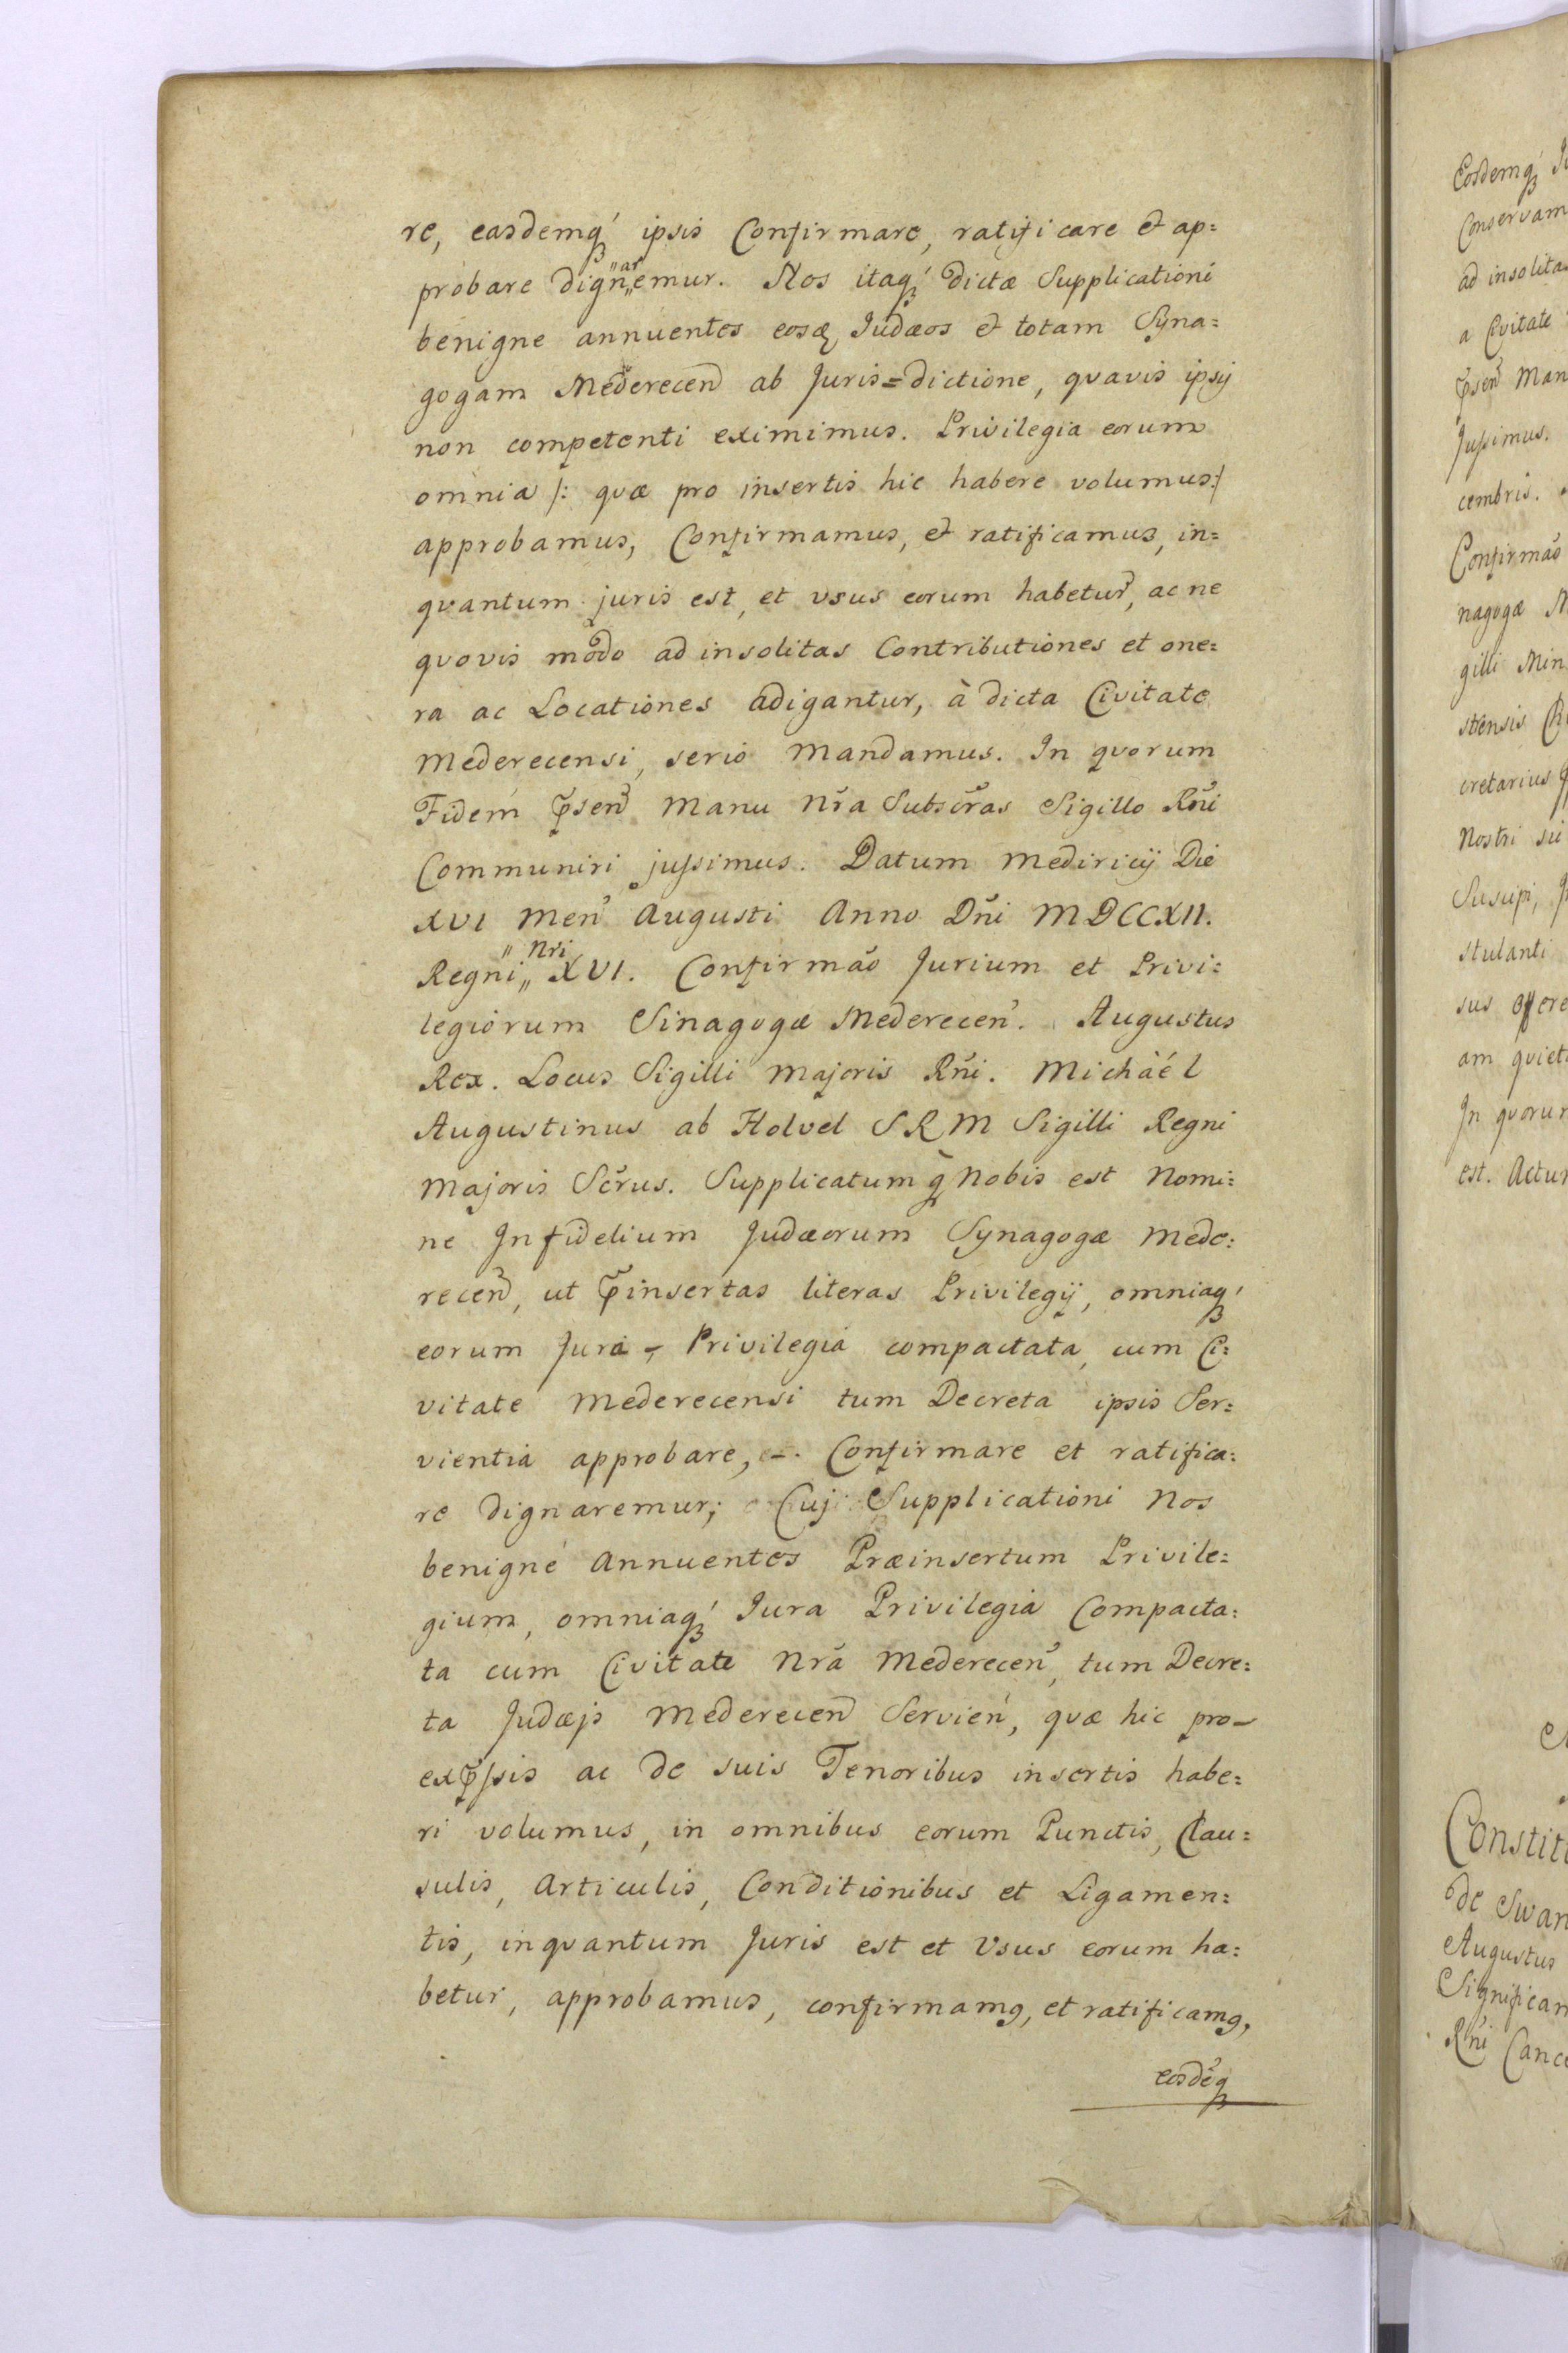 re, easdemq́ ipsis Confirmare, ratificare et ap=
probare dign„ar„emur. Nos itaq́ dictæ Supplicationi
benigne annuentes eosq Judæos et totam Syna=
gogam Mederecen̄ ab Juris=dictione, quavis ipsij
non competenti eximimus. Privilegia eorum
omnia /: quæ pro insertis hic habere volumus:/
approbamus, Confirmamus, et ratificamus, in=
quantum juris est, et usus eorum habetur, ac ne
quovis modo ad insolitas Contributiones et one=
ra ac Locationes adigantur, à dicta Civitate
Mederecensi, serio Mandamus. In quorum
Fidem p̄sen̄ Manu Nr̄a Subscr̄as Sigillo Rn̄i
Communiri jussimus. Datum Mediricij Die
XVI Men̄ Augusti Anno Dn̄i MDCCXII.
Regni „Nri„ XVI. Confirmāo Jurium et Privi=
legiorum Sinagogæ Mederecen̄. Augustus
Rex. Locus Sigilli Majoris Rn̄i. Michaél
Augustinus ab Holvel SRM Sigilli Regni
Majoris Scr̄us. Supplicatum q̄ Nobis est Nomi=
ne Infidelium Judæorum Synagogæ Mede=
recen̄, ut p̄insertas literas Privilegij, omniaq́
eorum Jura - Privilegia compactata, cum Ci=
vitate Mederecensi tum Decreta ipsis Ser=
vientia approbare, -. Confirmare et ratifica=
re dignaremur; Cuj Supplicationi Nos
benigné Annuentes Præinsertum Privile=
gium, omniaq́ Jura Privilegia Compacta=
ta cum Civitate Nr̄a Mederecen̄, tum Decre=
ta Judæjs Mederecen̄ Servien̄, quæ hic pro-
exp̄ssis ac de suis Tenoribus insertis habe=
ri volumus, in omnibus eorum Punctis, Clau=
sulis, Articulis, Conditionibus et Ligamen=
tis, inquantum Juris est et Usus eorum ha=
betur, approbamus, confirmamꝯ, et ratificamꝯ,
eosdēq
Eosdemq́ Ju
Conservam
ad insolita
a Civitate
p̄sen̄ Man
Jussimus.
cembris.
Confirmāo
nagogæ M
gilli Min
stensis
cretarius
Nostri
Suscipi,
stulanti
sus
am quiet
In quorum
est. Actum
Constit
de Swan
Augustus
Significam
Rn̄i Canc